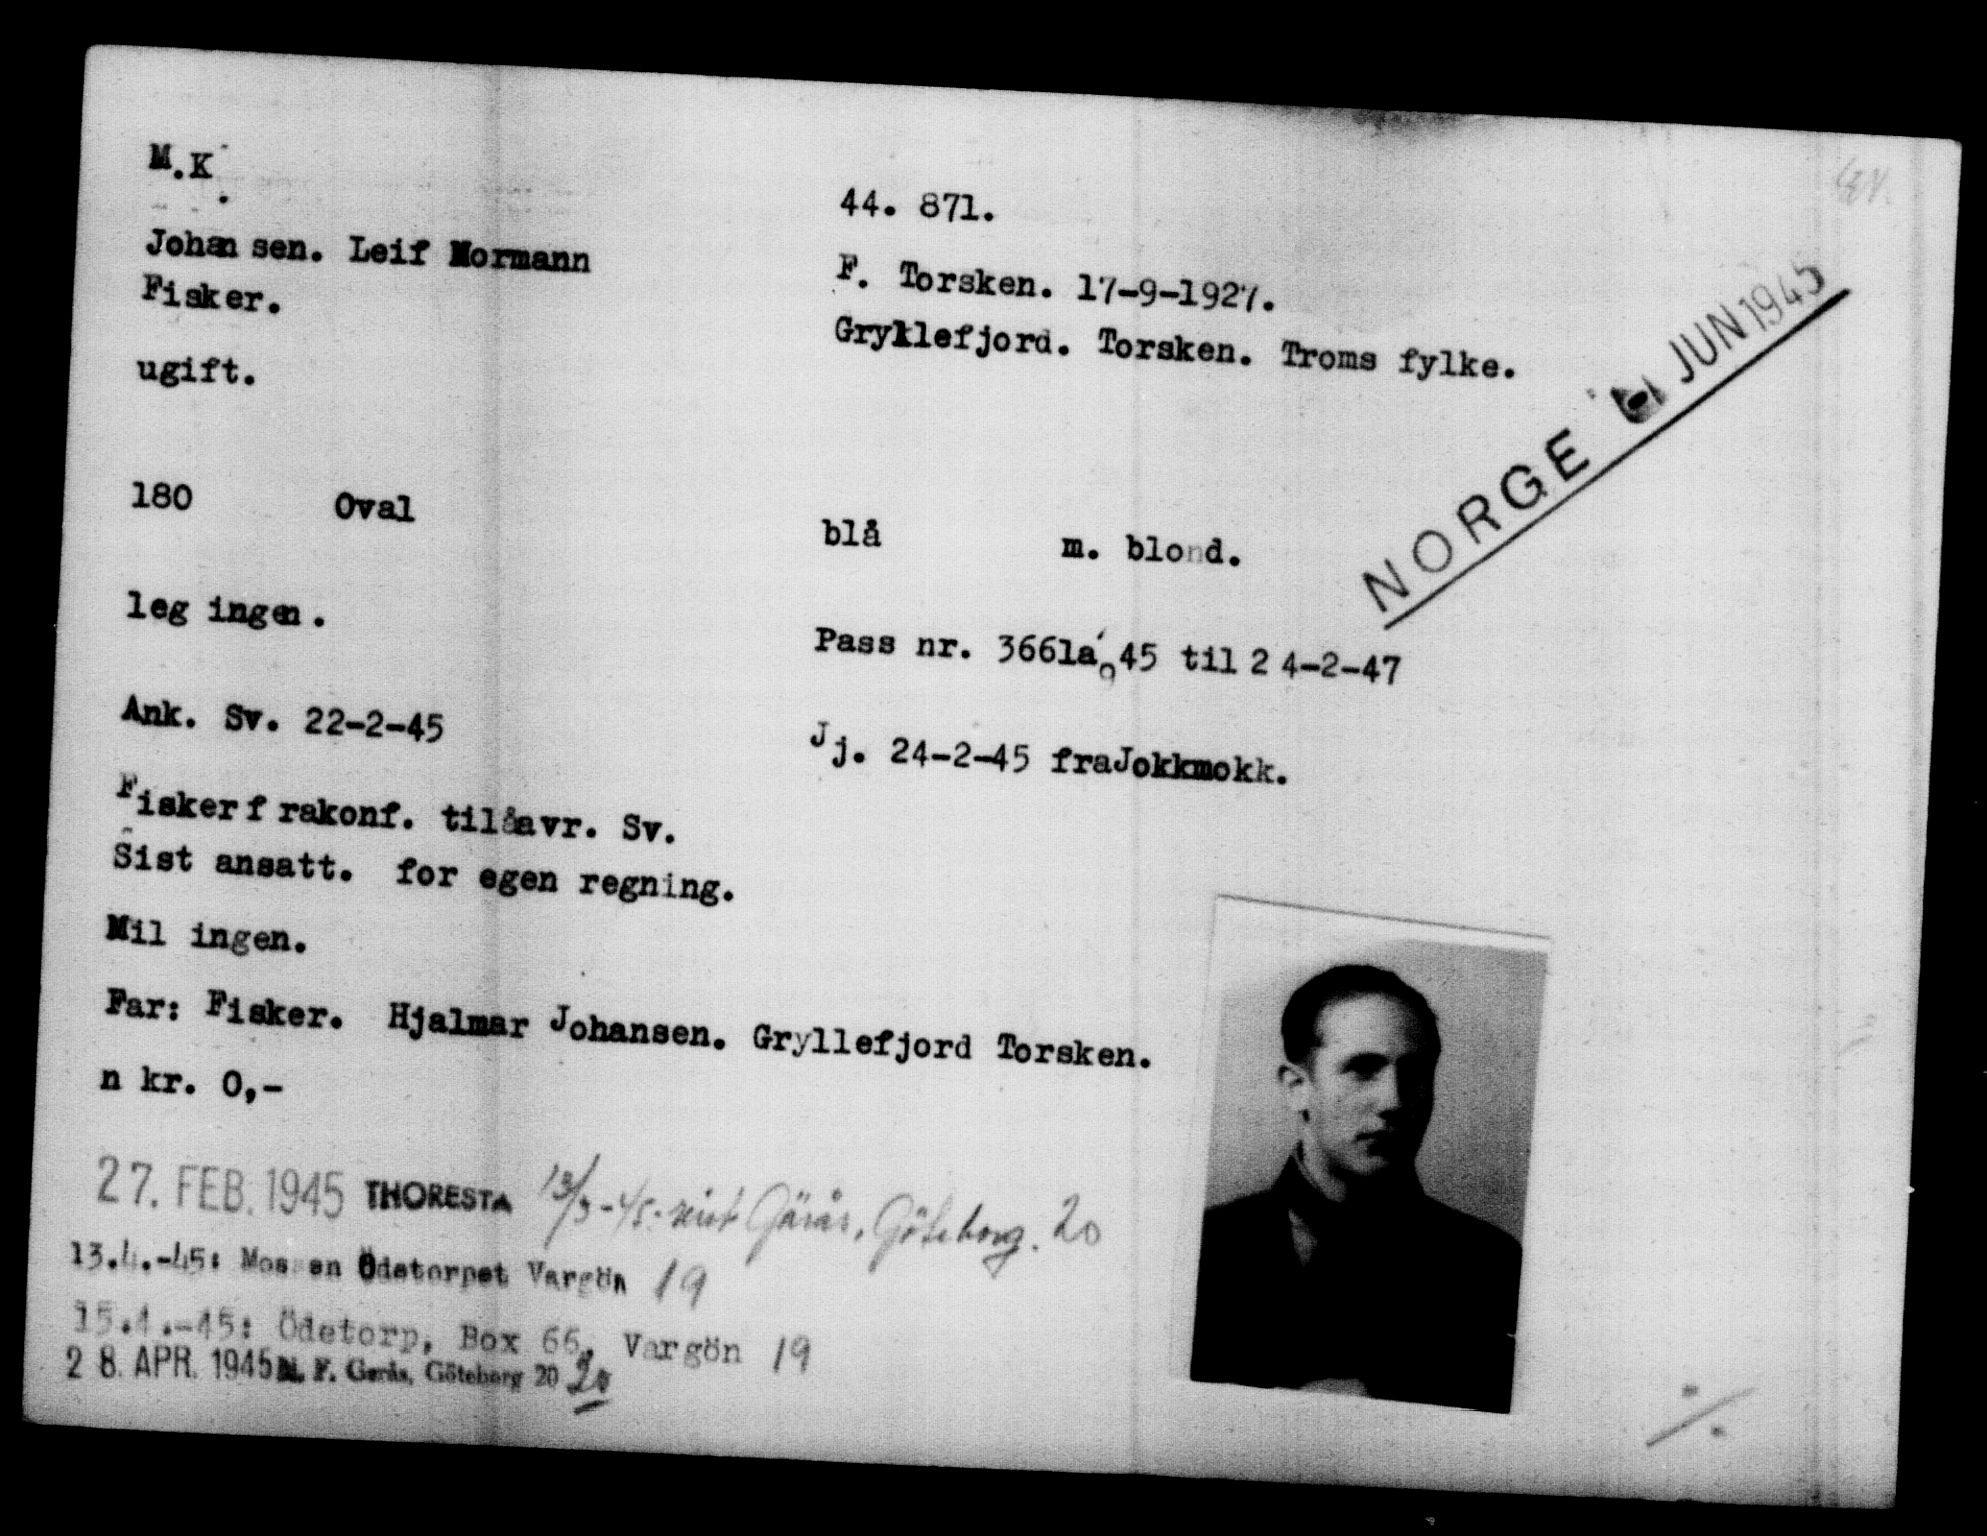 M.K.
44. 871.
Johansen. Leif Normann
F. Torsken. 17-9-1927.
Fisker.
Gryllefjord. Torsken. Troms fylke.
ugift.
NORGE JUN 1945
180 Oval blå m. blond.
leg ingen.
Pass nr. 3661a 45 til 24-2-47
Ank. Sv. 22-2-45
Jj. 24-2-45 fra Jokkmokk.
Fisker f rakonf. til avr. Sv.
Sist ansatt. for egen regning.
Mil ingen.
Far: Fisker. Hjalmar Johansen. Gryllefjord Torsken.
n kr. 0,-
27. FEB. 1945 THORESTA 13/3-45. Göteborg. 20
13.4.-45: Mossen Ödetorpet Vargön 19
15.4.-45: Ödetorp, Box 66, Vargön 19
28. APR. 1945 M. F. Gerås, Göteborg 20 20